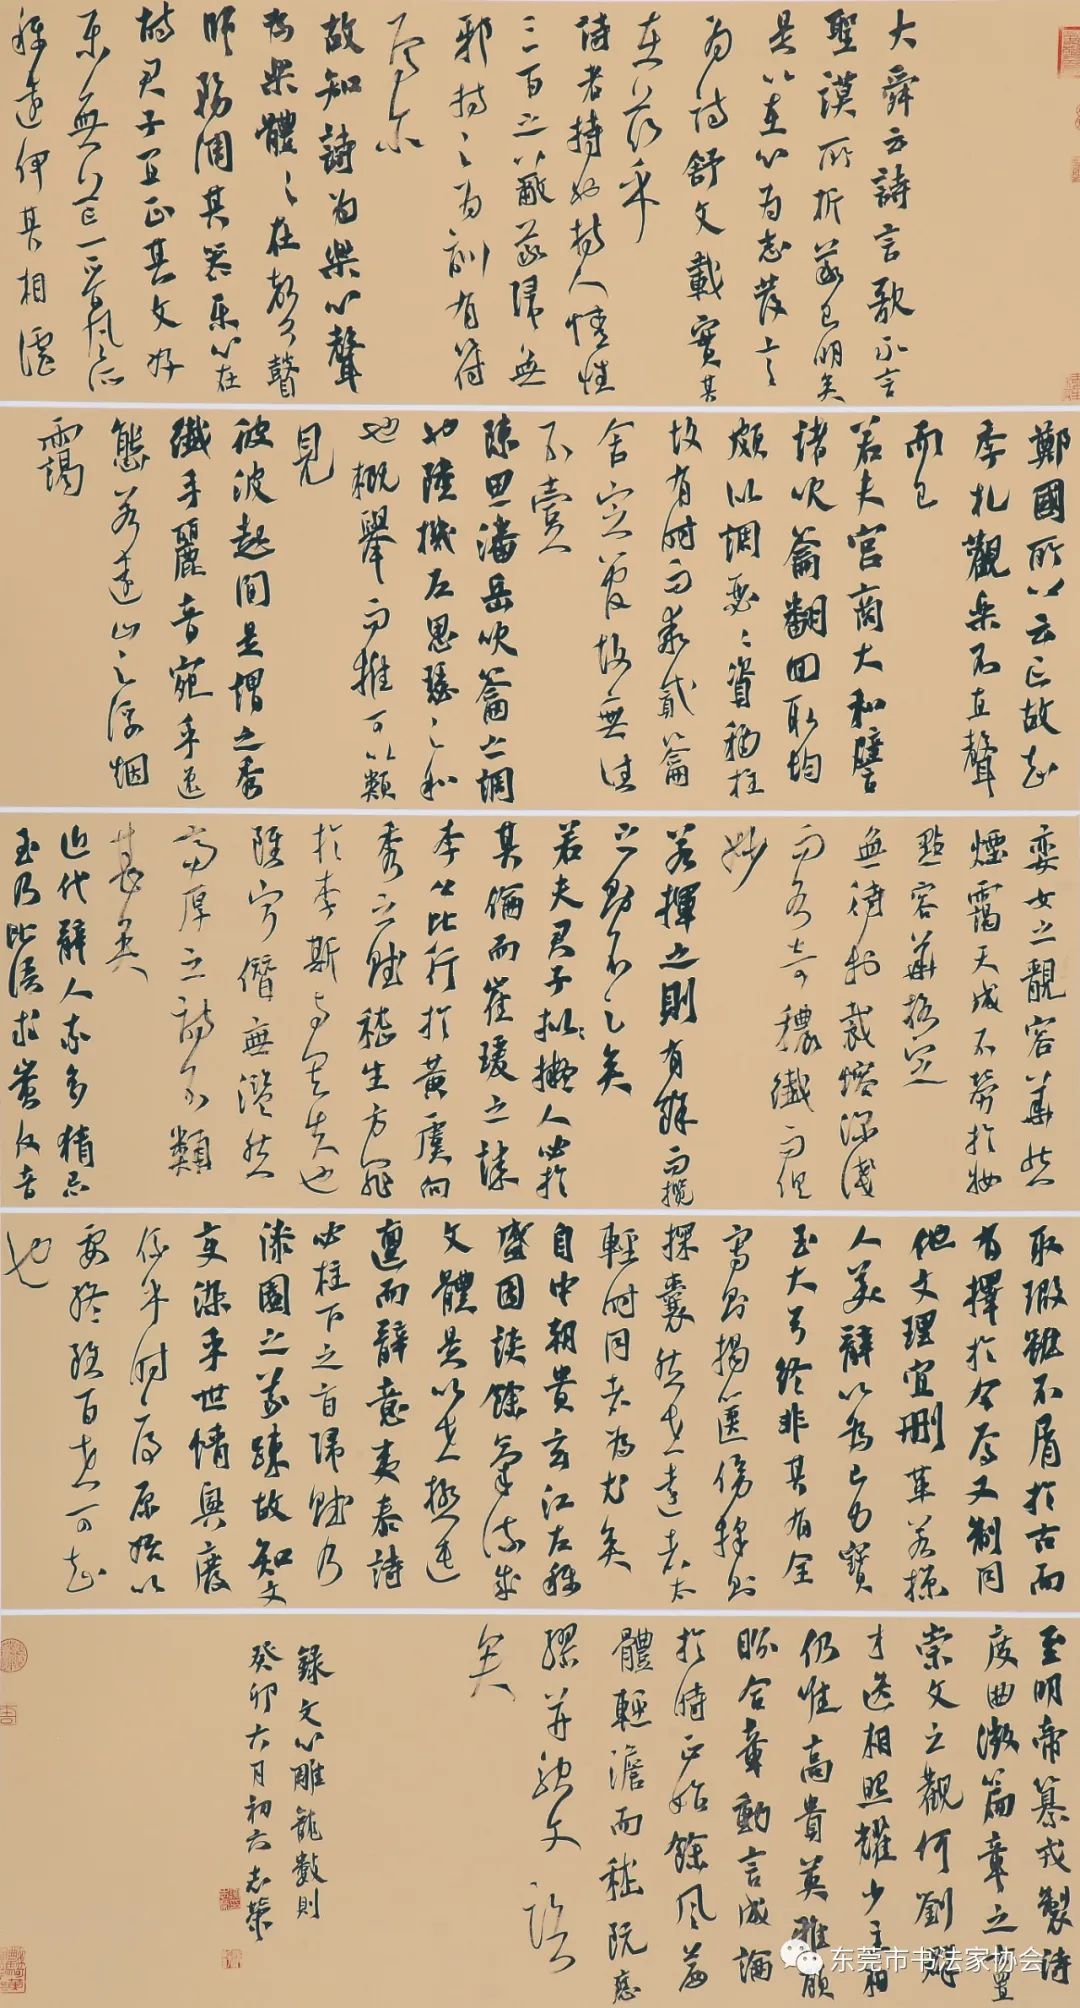 大舜云詩言志歌永言
聖謨所析義已明矣
是以在心為志發言
為詩舒文載實其
在茲乎
詩者持也持人情性
三百之蔽義歸無
邪持之為訓有符
焉尔
故知詩為樂心聲
為樂體體在聲瞽
師務調其器樂心在
詩君子宜正其文好
樂無荒晉風所
稱遠伊其相謔
鄭國所以云亡故知
季札觀樂不直聽聲
而已
若夫宮商大和譬
諸吹籥翻迴取均
頗似調瑟瑟資移柱
故有時而乖貳籥
含定管故無往
不壹
陳思潘岳吹籥之調
也陸機左思瑟之和
也概舉而推可以類
見
彼波起間是增之秀
纖手麗音宛乎逸
態若遠山之浮烟
靄
孌女之靚容華然
煙靄天成不勞於妝
點容華格定
無待於裁熔深淺
而各奇穠纖而俱
妙
若揮之則有餘而攬
之則不足矣
若夫君子擬人必於
其倫而崔瑗之誄
李公比行於黃虞向
秀之賦嵇生方罪
於李斯與其失也
雖寧僭無濫然
高厚之詩不類
甚矣
近代辭人率多猜忌
至乃比語求蚩反音
取瑕雖不屑於古而
有擇於今焉又制同
他文理宜刪革若掠
人美辭以為己力寶
玉大弓終非其有全
寫則揭篋傍採則
探囊然世遠者太
輕時同者為尤矣
自中朝貴玄江左稱
盛因談餘氣流成
文體是以世極迍
邅而辭意夷泰詩
必柱下之旨歸賦乃
漆園之義疏故知文
變染乎世情興廢
係乎時序原始以
要終雖百世可知
也
至明帝纂戎製詩
度曲徵篇章之士置
崇文之觀何劉群
才迭相照耀少主相
仍唯高貴英雅顧
盼合章動言成論
於時正始餘風篇
體輕澹而嵇阮應
繆并馳文路
矣
錄文心雕龍數則
癸卯六月初六志榮
东莞市书法家协会